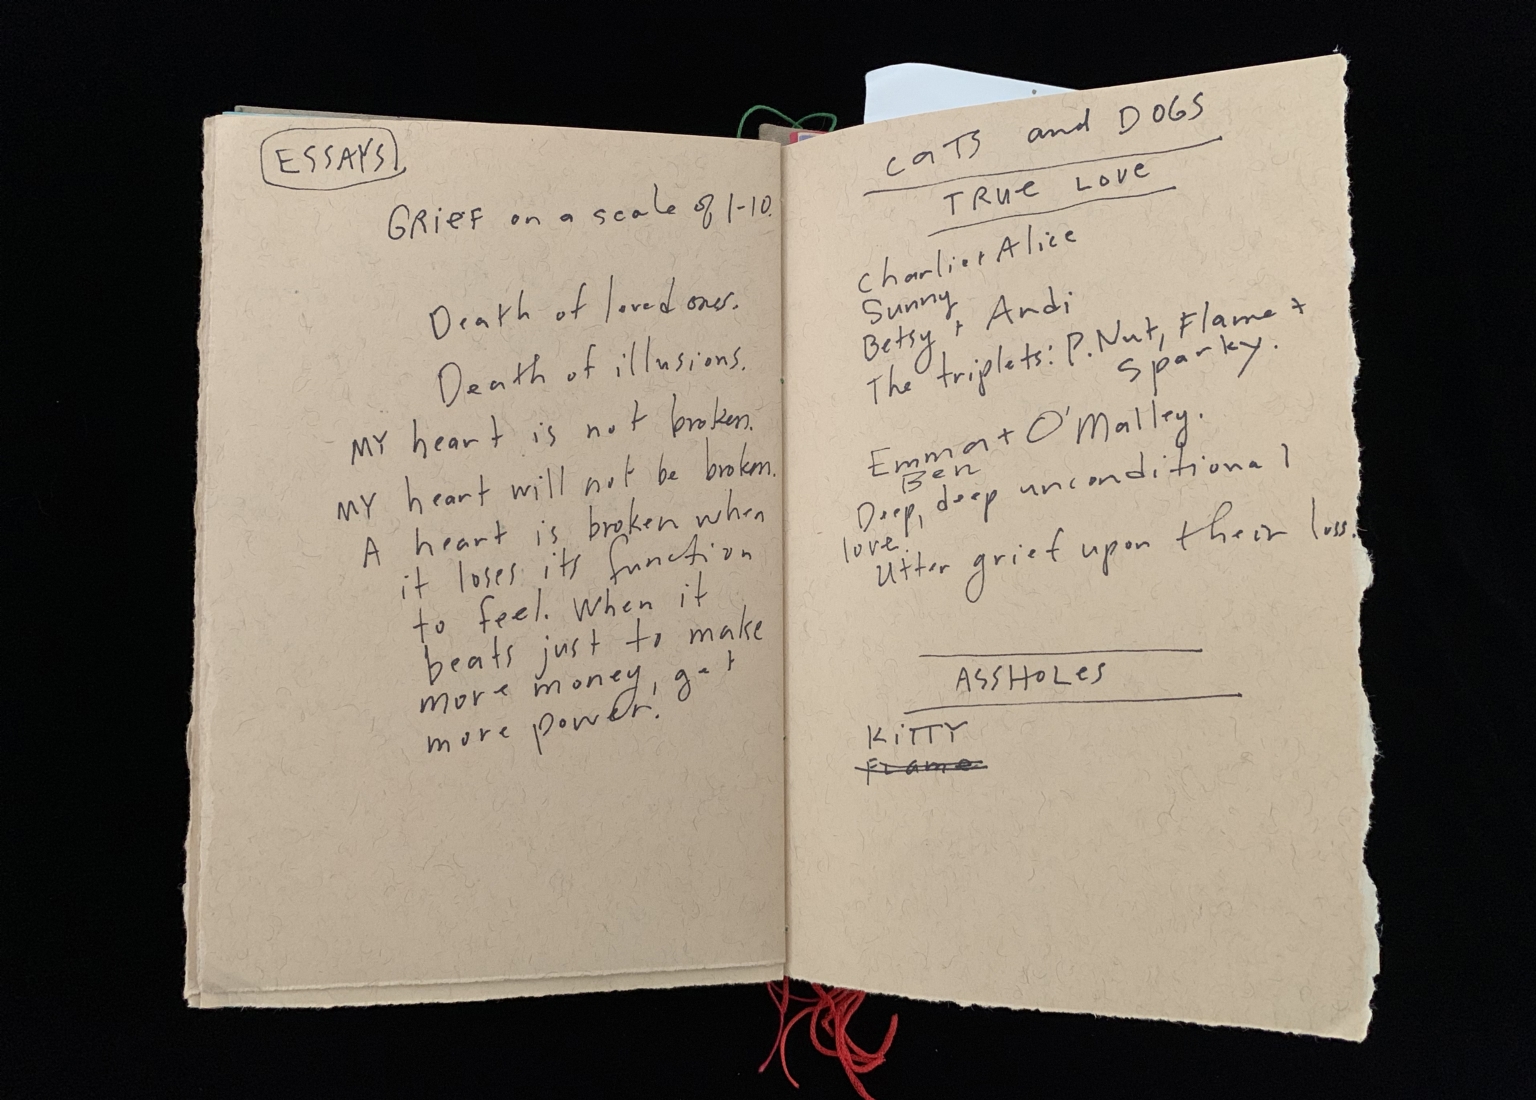 ESSAYS.
GRIEF on a scale of 1-10.
Death of loved ones.
Death of illusions.
MY heart is not broken.
MY heart will not be broken.
A heart is broken when
it loses its function
to feel. When it
beats just to make
more money, get
more power.
CATS and DOGS
TRUE LOVE
Charlie + Alice
Sunny
Betsy + Andi
The triplets: P.Nut, Flame +
Sparky.
Emma + O'Malley.
Ben
Deep, deep unconditional
love.
Utter grief upon their loss.
ASSHOLES
KITTY
Flame